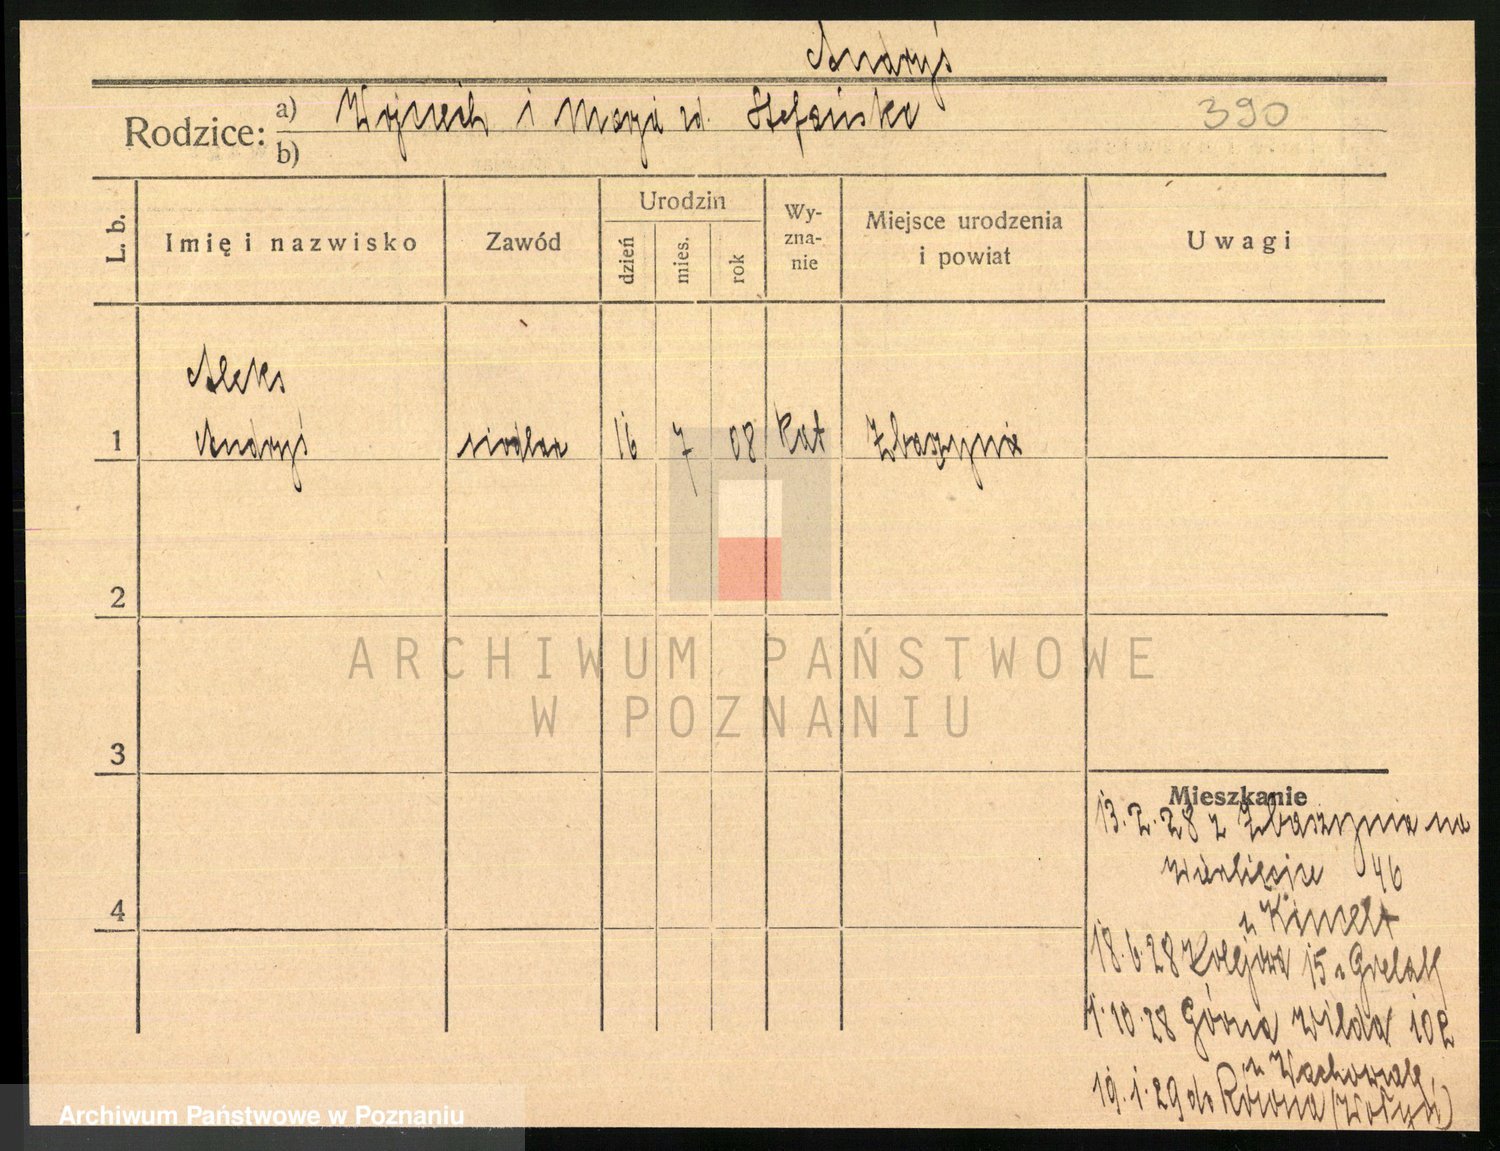 Andryś
Rodzice: a) Wojciech i Marja zd. Stefańska 390
b)
L. b.
Imię i nazwisko
Zawód
Urodzin
dzień
mies.
rok
Wy-
zna-
nie
Miejsce urodzenia
i powiat
Uwagi
Aleks
1 Andryś siodlarz 16 7 08 kat Zbąszynia
2
3
4
ARCHIWUM PAŃSTWOWE
W POZNANIU
Mieszkanie
13.2.28 z Zbąszynia na
46
u
18.6.28 Kolejowa 15 u
1.10.28 Górna Wilda 102
u Wachowiak
19.1.29 do Równa (Wołyń)
Archiwum Państwowe w Poznaniu